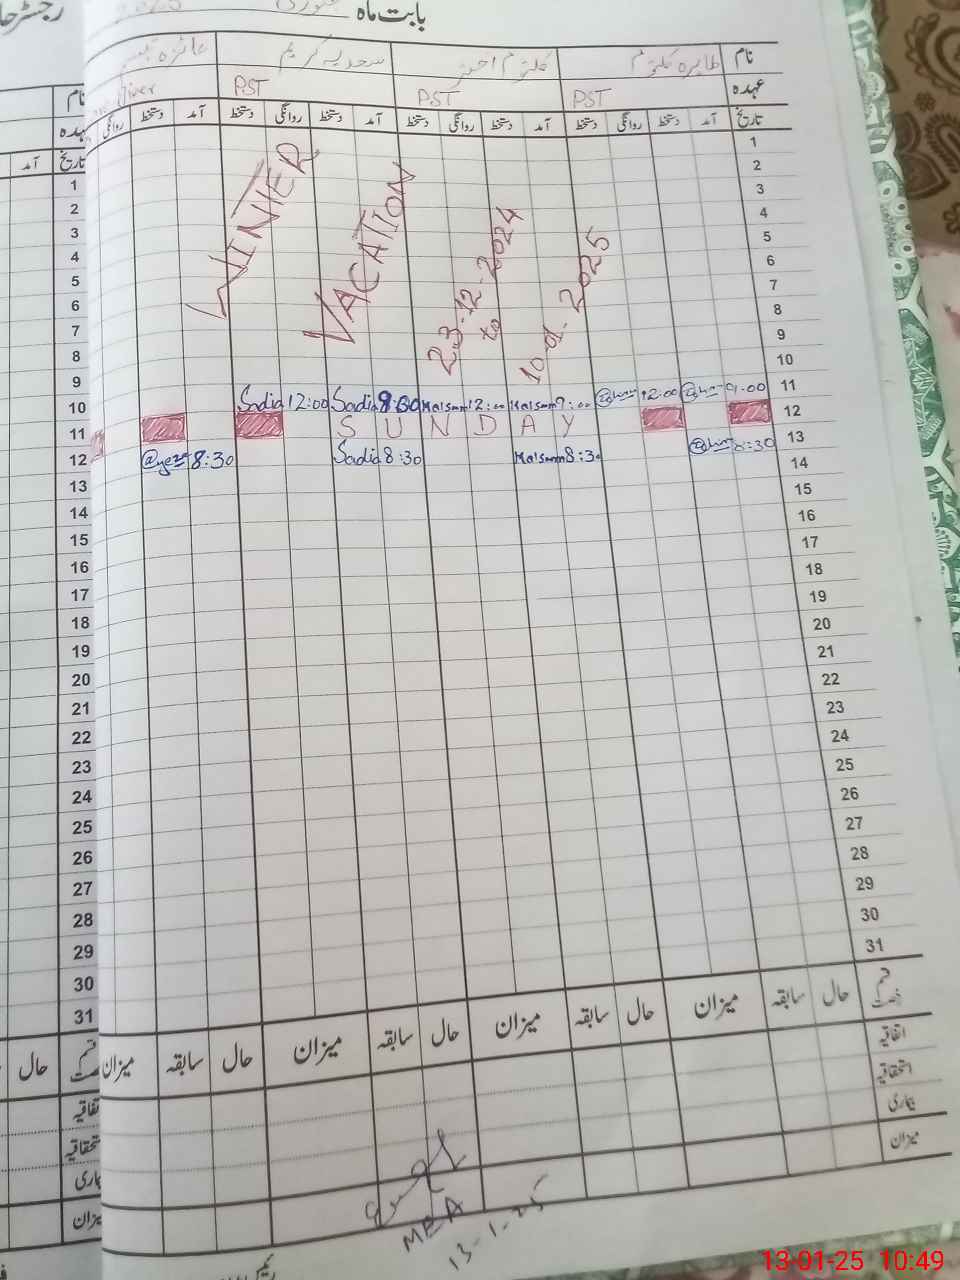 بابت ماہ
رجسٹر
نام طاہرہ کلثوم کلثوم اختر سعدیہ کریم عائزہ
عہدہ PST PST PST
تاریخ آمد دستخط روانگی دستخط آمد دستخط روانگی دستخط آمد دستخط روانگی دستخط آمد دستخط روانگی
1
2
3
4
5
6
7
8
9
10
WINTER
VACATION
23-12-2024
to
10-01-2025
11 9:00 12:00 Kalsum 9:00 Kalsum 12:00 Sadia 9:00 Sadia 12:00
12 SUNDAY
13 8:30 Kalsum 8:30 Sadia 8:30 8:30
14
15
16
17
18
19
20
21
22
23
24
25
26
27
28
29
30
31
قسم حال سابقہ میزان حال سابقہ میزان حال سابقہ میزان حال سابقہ میزان
اتفاقیہ
استحقاقیہ
بیماری
میزان
نام
تاریخ آمد
1
2
3
4
5
6
7
8
9
10
11
12
13
14
15
16
17
18
19
20
21
22
23
24
25
26
27
28
29
30
31
قسم حال
میزان
MEA
13-1-25
13-01-25 10:49